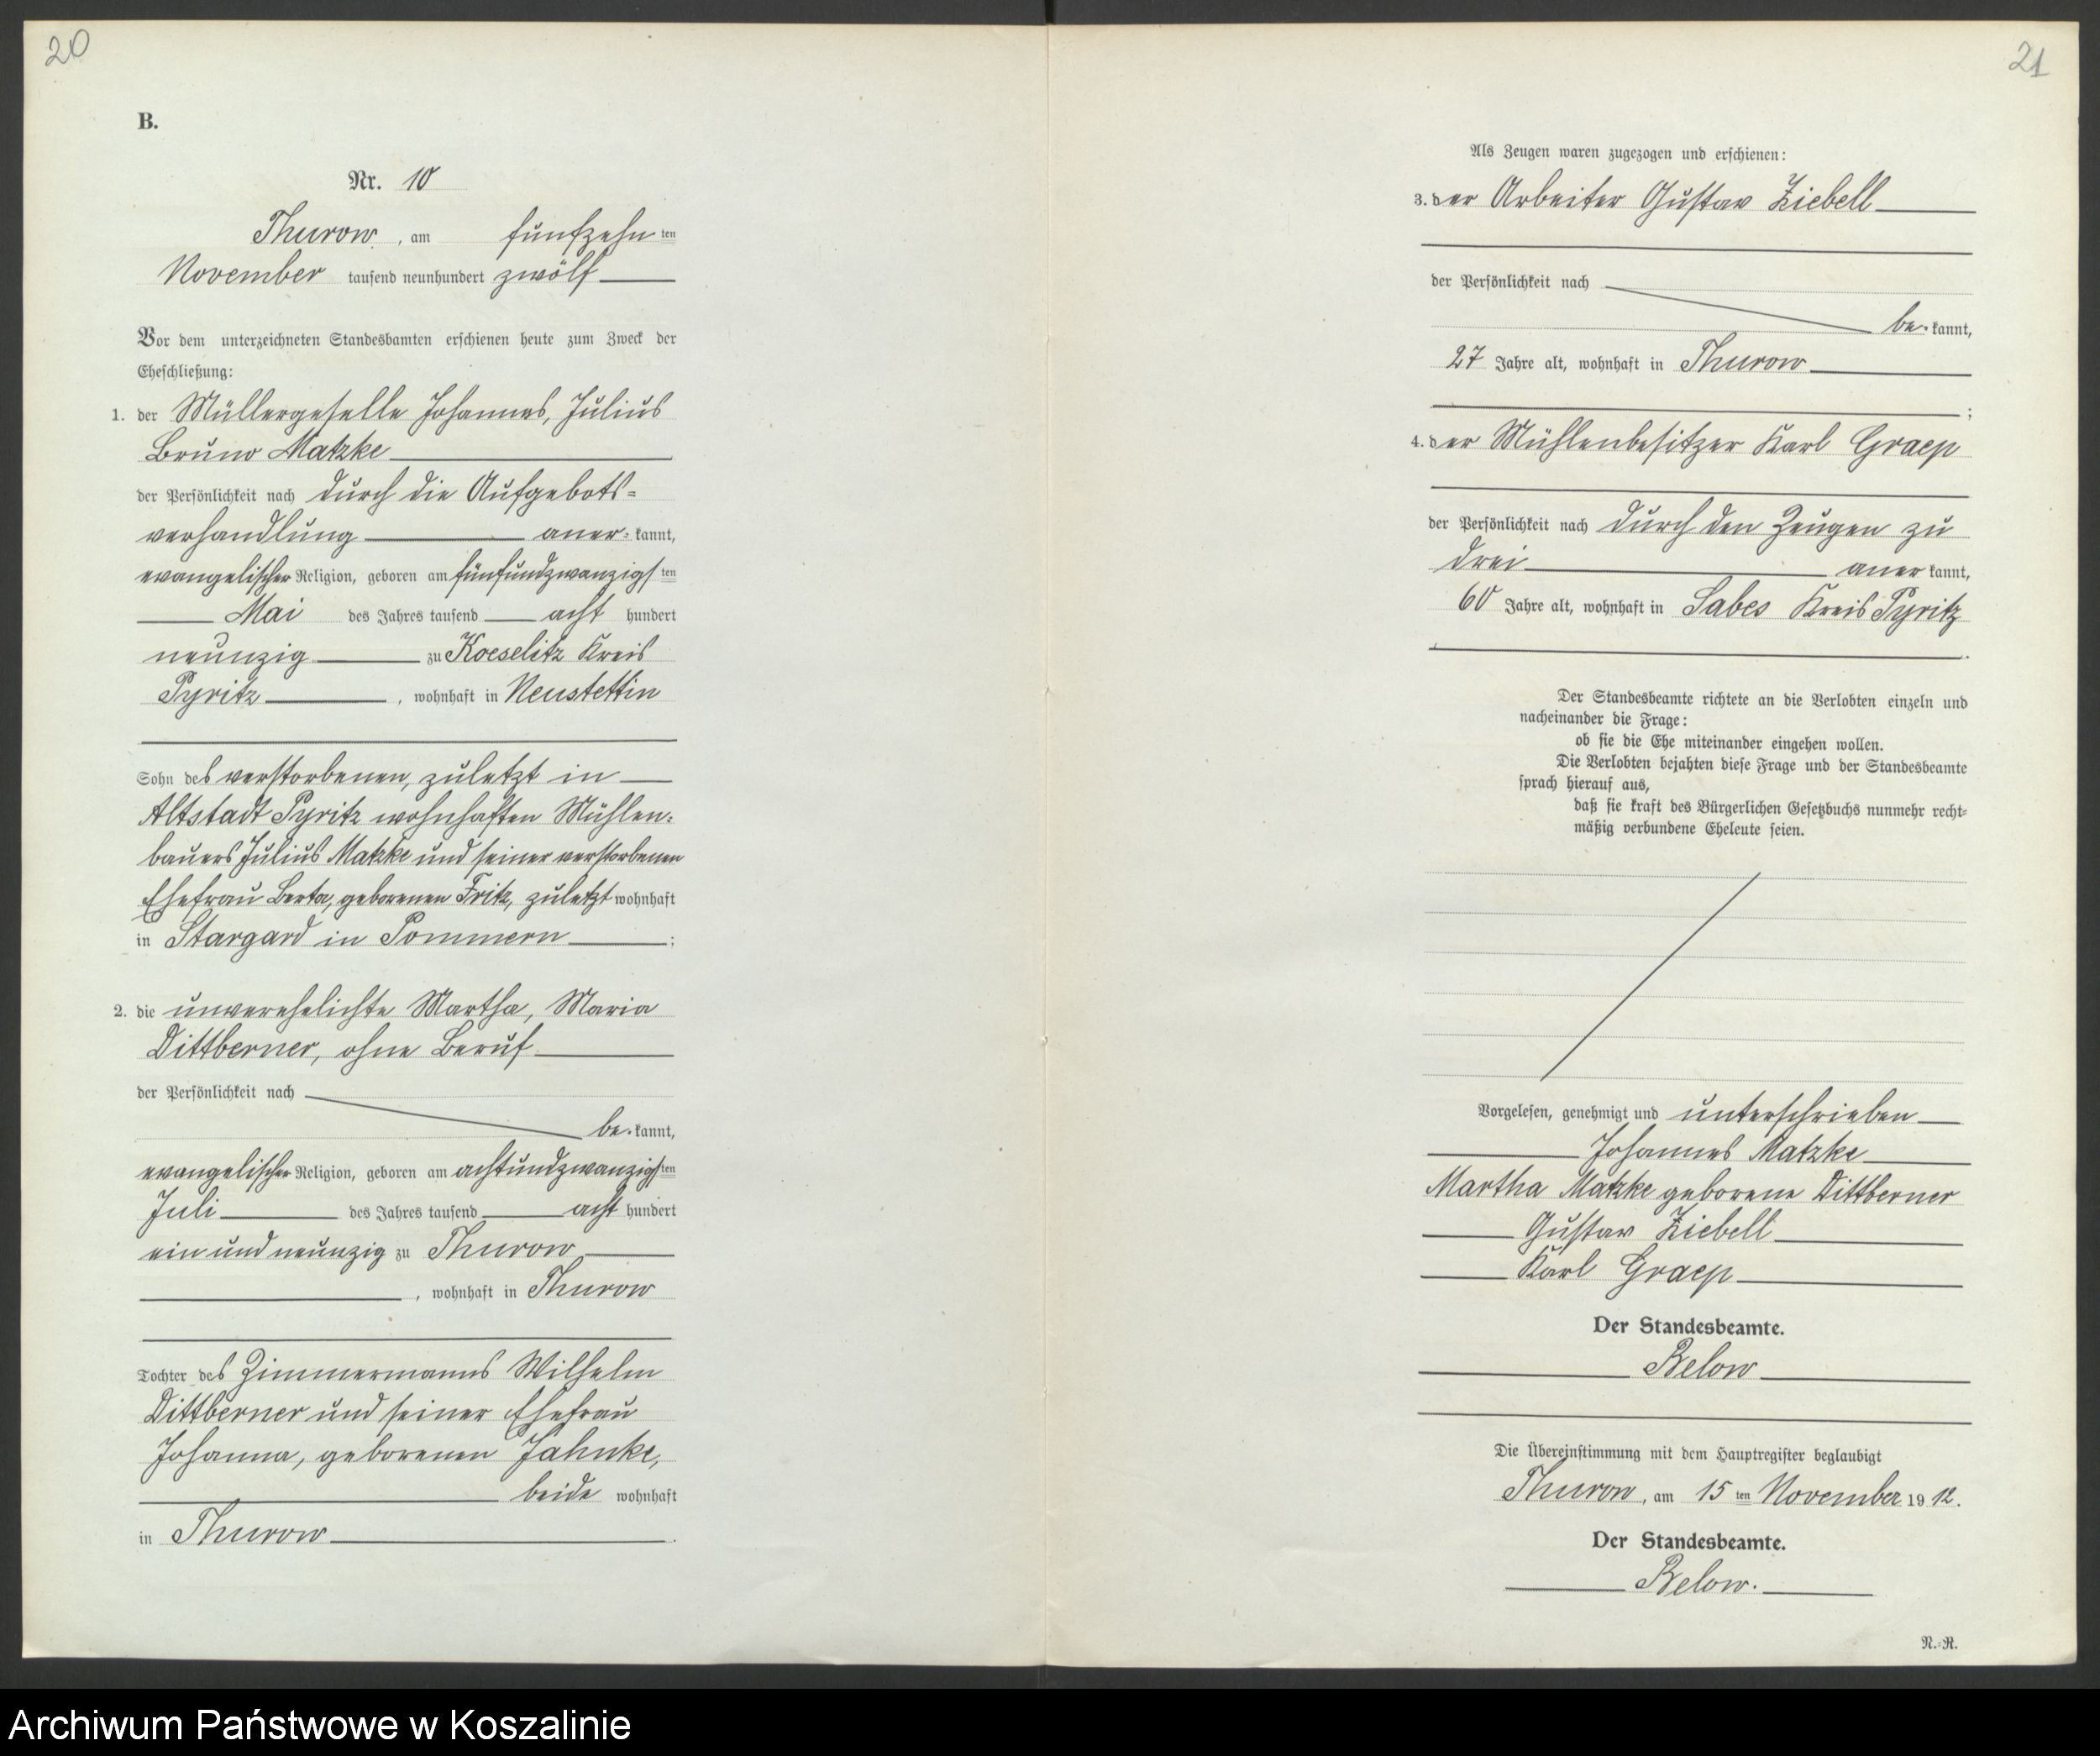 20
B.
Nr. 10
Thurow, am fünfzehn ten
November tausend neunhundert zwölf
Vor dem unterzeichneten Standesbamten erschienen heute zum Zweck der
Eheschließung:
1. der Müllergeselle Johannes, Julius
Bruno Matzke
der Persönlichkeit nach durch die Aufgebots=
verhandlung aner=kannt,
evangelischer Religion, geboren am fünfundzwanzigsten
Mai des Jahres tausend acht hundert
neunzig zu Koeselitz Kreis
Pyritz, wohnhaft in Neustettin
Sohn des verstorbenen, zuletzt in
Altstadt Pyritz wohnhaften Mühlen=
bauers Julius Matzke und seiner verstorbenen
Ehefrau Berta, geborenen Fritz, zuletzt wohnhaft
in Stargard in Pommern;
2. die unverehelichte Martha, Maria
Dittberner, ohne Beruf
der Persönlichkeit nach
be=kannt,
evangelischer Religion, geboren am achtundzwanzigsten
Juli des Jahres tausend acht hundert
ein und neunzig zu Thurow
, wohnhaft in Thurow
Tochter des Zimmermanns Wilhelm
Dittberner und seiner Ehefrau
Johanna, geborenen Jahnke,
beide wohnhaft
in Thurow.
21
Als Zeugen waren zugezogen und erschienen:
3. der Arbeiter Gustav Ziebell
der Persönlichkeit nach
be=kannt,
27 Jahre alt, wohnhaft in Thurow
;
4. der Mühlenbesitzer Karl Graep
der Persönlichkeit nach durch den Zeugen zu
drei aner kannt,
60 Jahre alt, wohnhaft in Sabes Kreis Pyritz
.
Der Standesbeamte richtete an die Verlobten einzeln und
nacheinander die Frage:
ob sie die Ehe miteinander eingehen wollen.
Die Verlobten bejahten diese Frage und der Standesbeamte
sprach hierauf aus,
daß sie kraft des Bürgerlichen Gesetzbuchs nunmehr recht=
mäßig verbundene Eheleute seien.
Vorgelesen, genehmigt und unterschrieben
Johannes Matzke
Martha Matzke geborene Dittberner
Gustav Ziebell
Karl Graep
Der Standesbeamte.
Below
Die Übereinstimmung mit dem Hauptregister beglaubigt
Thurow, am 15 ten November 1912.
Der Standesbeamte.
Below.
N.=R.
Archiwum Państwowe w Koszalinie